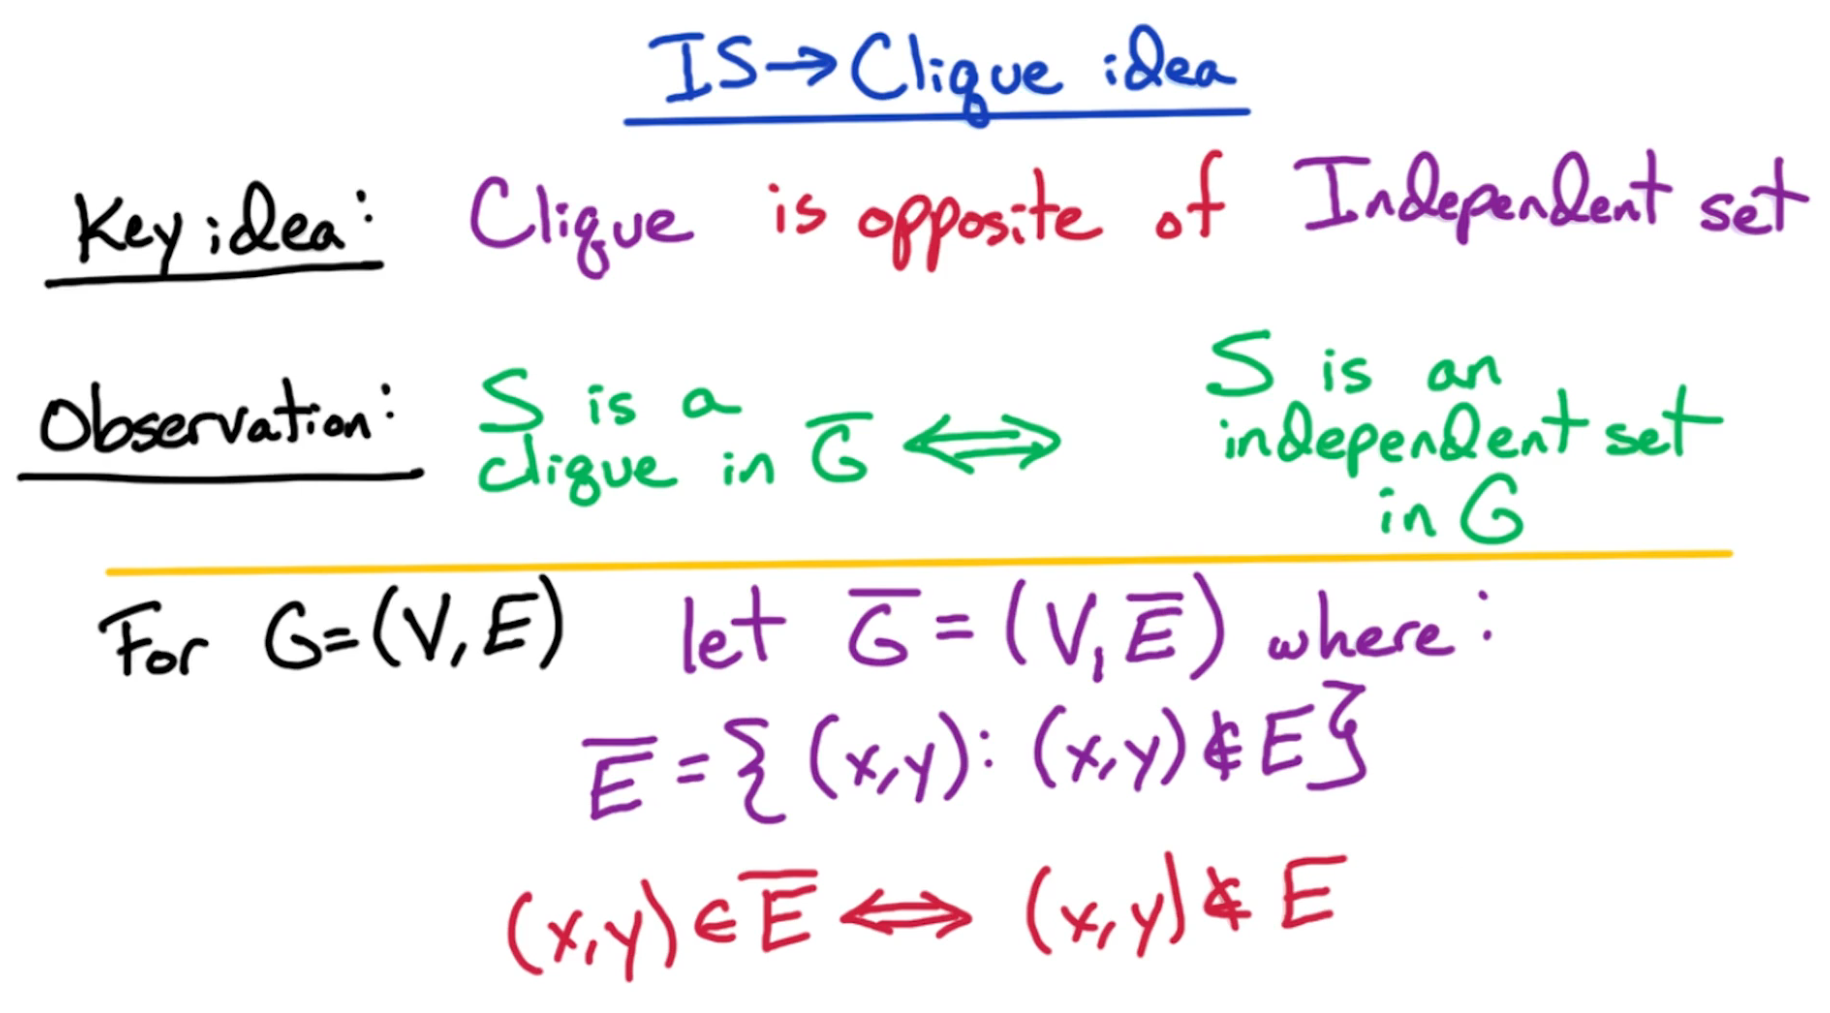 IS → Clique idea
Key idea: Clique is opposite of Independent set
Observation: S is a clique in G̅ ⟺ S is an independent set in G
For G=(V,E) let G̅=(V,E̅) where:
E̅={(x,y):(x,y)∉E}
(x,y)∈E̅ ⟺ (x,y)∉E